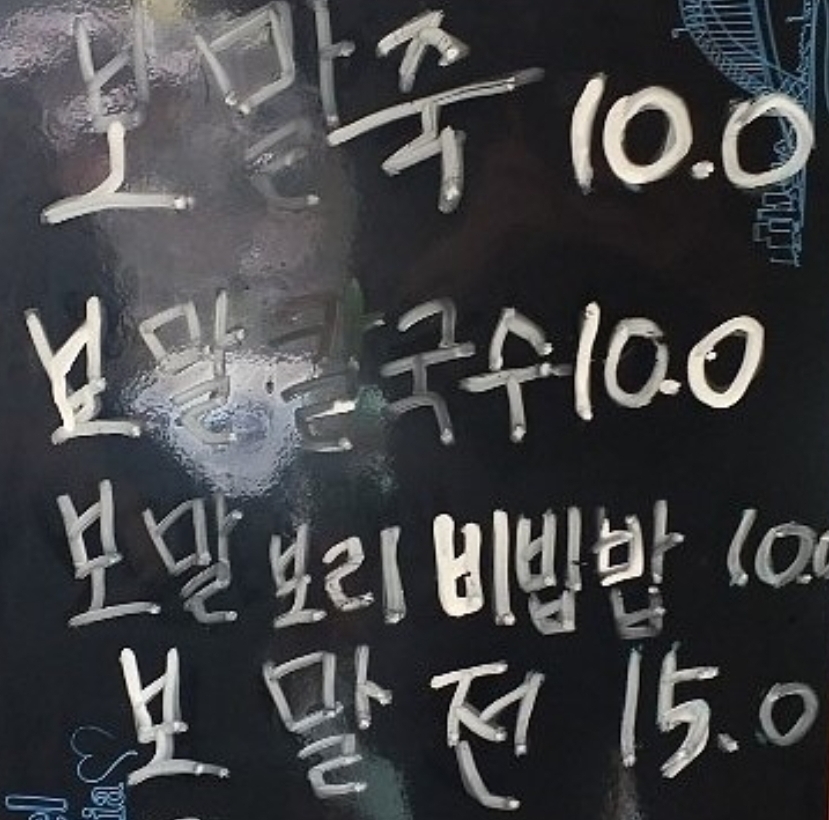 보말죽 10.0
보말칼국수 10.0
보말 보리 비빔밥 10.0
보말전 15.0
el
ia